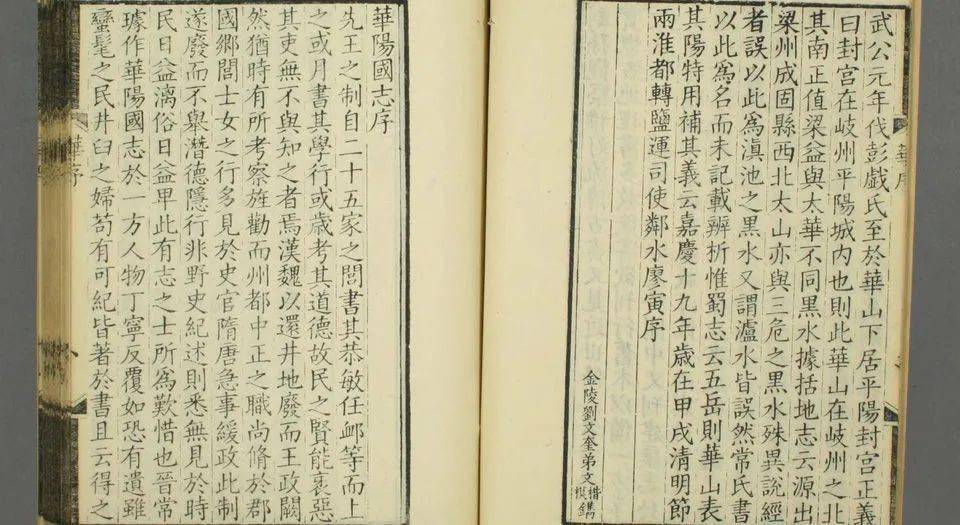 武公元年伐彭戲氏至於華山下居平陽封宮正義
曰封宮在岐州平陽城內也則此華山在岐州之北
其南正值梁益與太華不同黑水據括地志云源出
梁州成固縣西北太山亦與三危之黑水殊異說經
者誤以此爲滇池之黑水又謂瀘水皆誤然常氏書
以此爲名而未記載辨析惟蜀志云五岳則華山表
其陽特用補其義云嘉慶十九年歲在甲戌清明節
兩淮都轉鹽運司使鄰水廖寅序
金陵劉文奎弟文楷模鐫
華陽國志序
先王之制自二十五家之閭書其恭敏任䘏等而上
之或月書其學行或歲考其道德故民之賢能裒惡
其吏無不與知之者焉漢魏以還井地廢而王政闕
然猶時有所考察旌勸而州都中正之職尚脩於郡
國鄉閭士女之行多見於史官隋唐急事緩政此制
遂廢而不舉潛德隱行非野史紀述則悉無見於時
民日益漓俗日益卑此有志之士所爲歎惜也晉常
璩作華陽國志於一方人物丁寧反覆如恐有遺雖
蠻髦之民井臼之婦苟有可紀皆著於書且云得之
華序